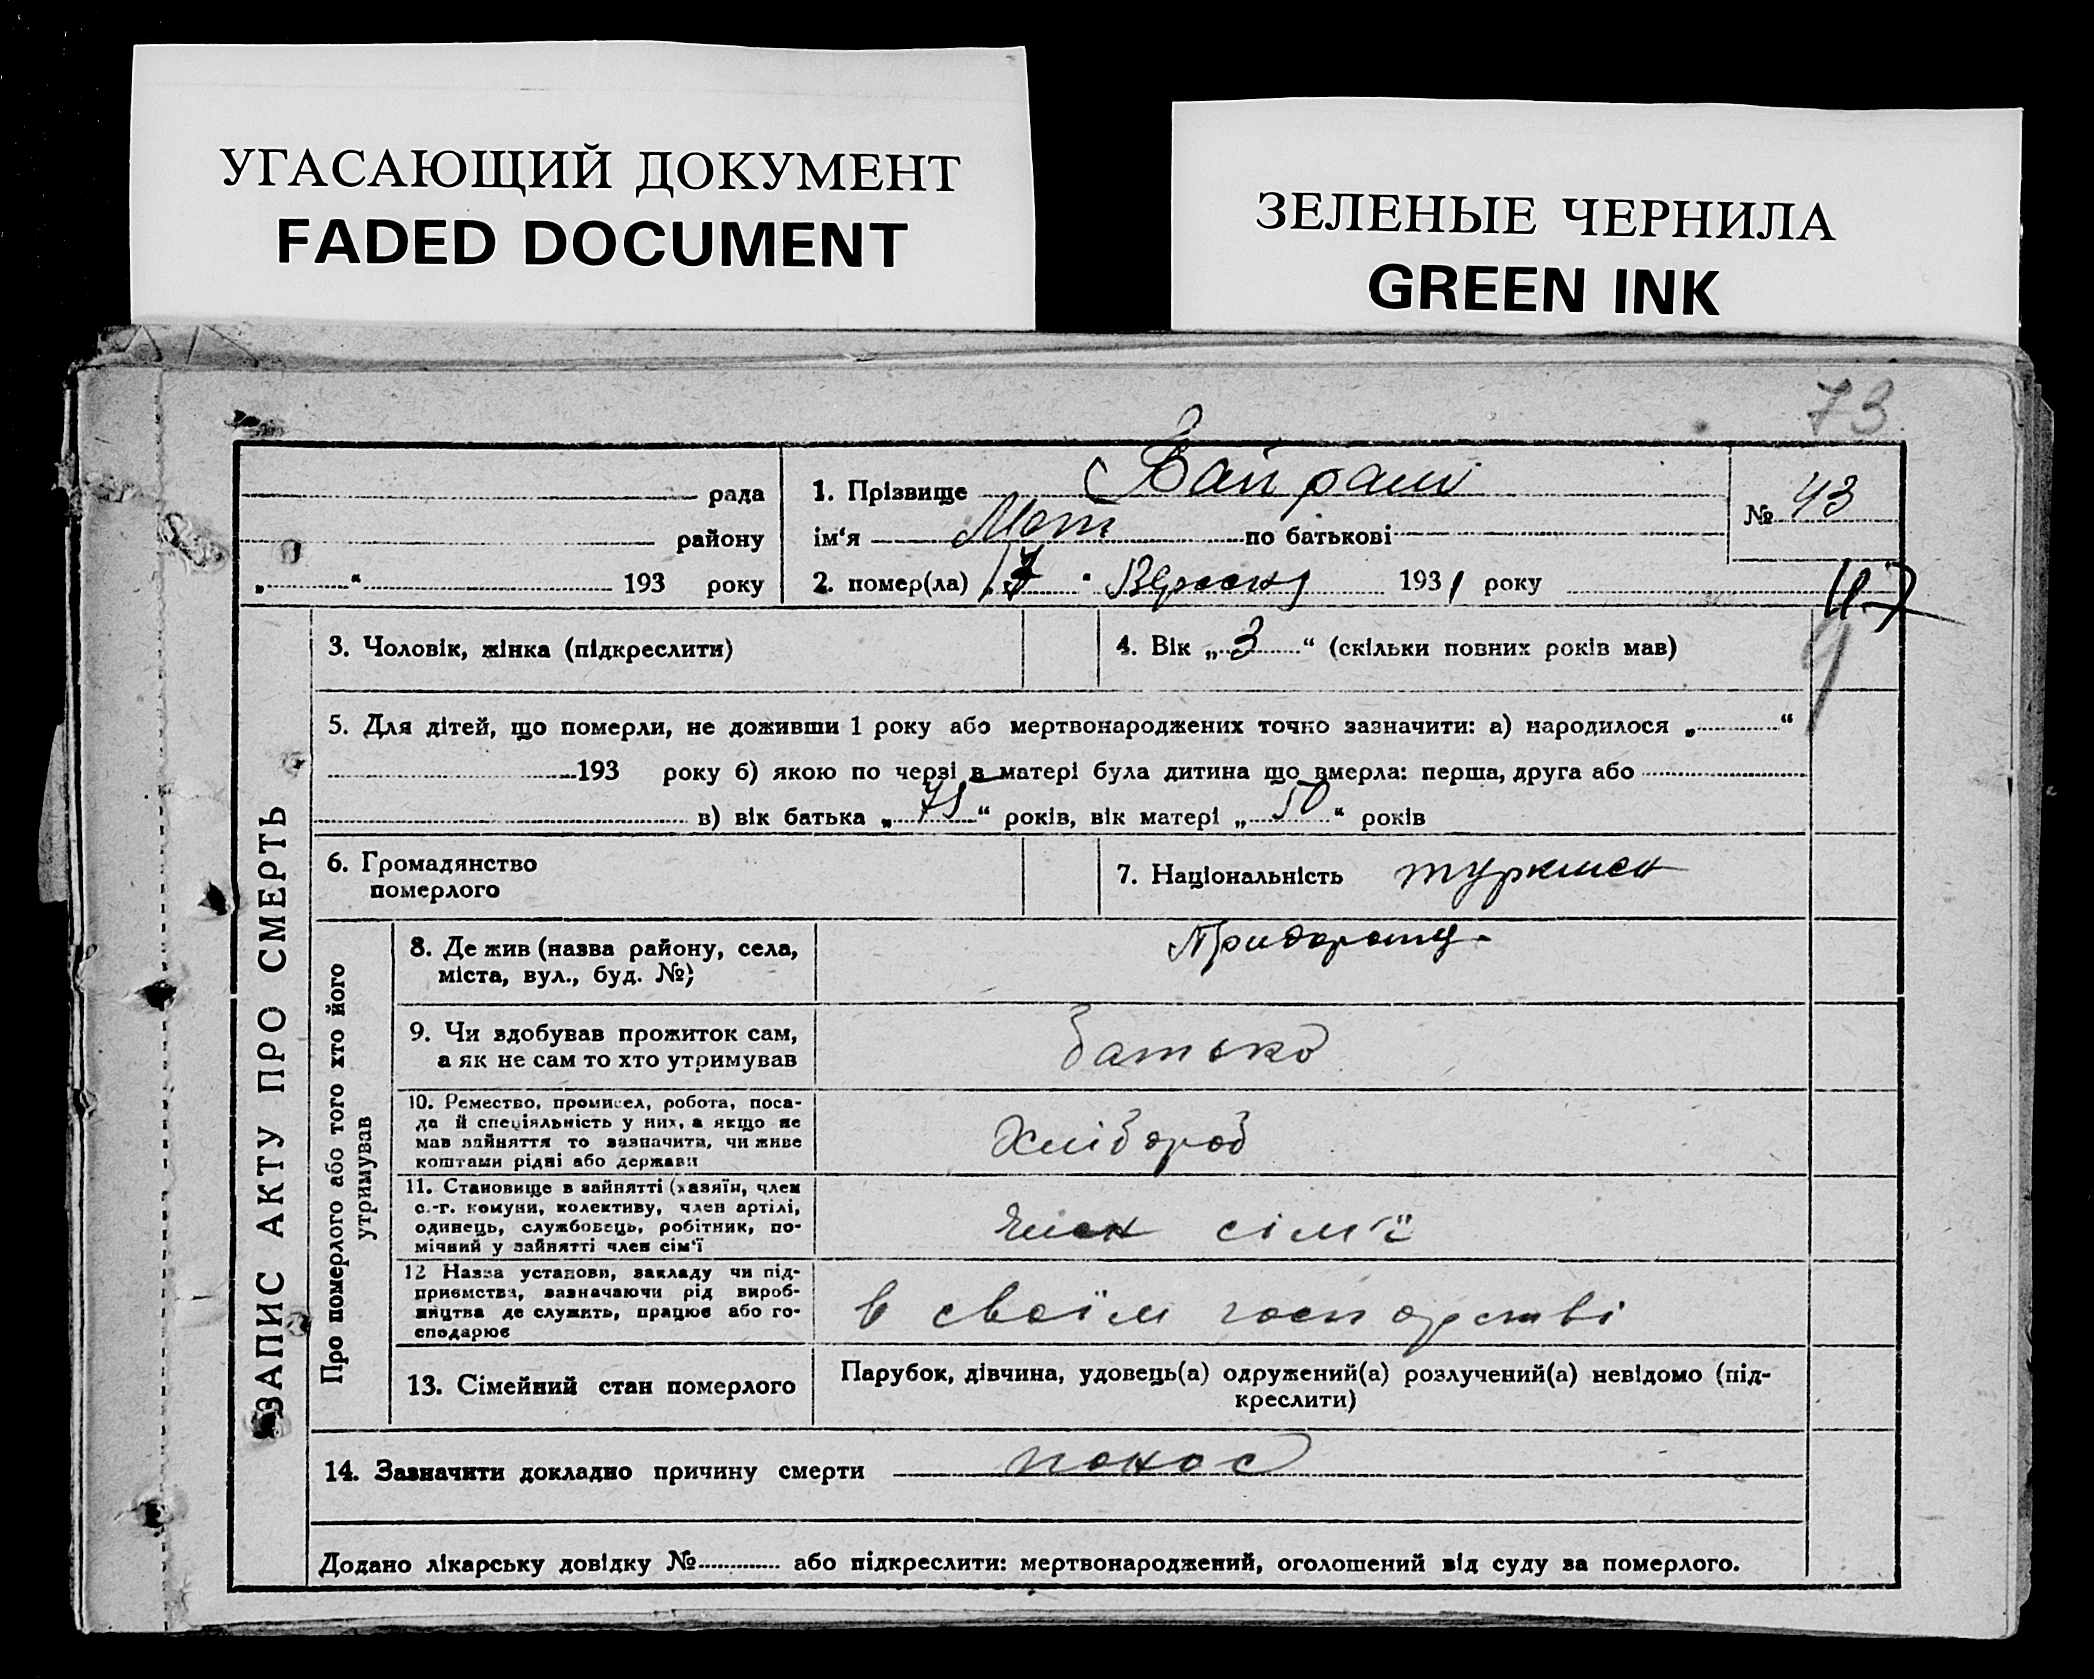 УГАСАЮЩИЙ ДОКУМЕНТ
FADED DOCUMENT
ЗЕЛЕНЫЕ ЧЕРНИЛА
GREEN INK
73
рада
району
„ “ 193 року
1. Прізвище Байрам
ім'я Мет по батькові
2. помер(ла) „ “ Вересня 1931 року
№ 43
ЗАПИС АКТУ ПРО СМЕРТЬ
3. Чоловік, жінка (підкреслити)
4. Вік „ 3 “ (скільки повних років мав)
5. Для дітей, що померли, не доживши 1 року або мертвонароджених точно зазначити: а) народилося „ “
193 року б) якою по черзі в матері була дитина що вмерла: перша, друга або
в) вік батька „ “ років, вік матері „ 50 “ років
6. Громадянство
померлого
7. Національність туркмен
Про померлого або того хто його
утримував
8. Де жив (назва району, села,
міста, вул., буд. №)
9. Чи здобував прожиток сам,
а як не сам то хто утримував
батько
10. Ремество, промисел, робота, поса-
да й спеціяльність у них, а якщо не
мав зайняття то зазначити, чи живе
коштами рідні або держави
Хлібороб
11. Становище в зайнятті (хазяїн, член
с.-г. комуни, колективу, член артілі,
одинець, службовець, робітник, по-
мічний у зайнятті член сім'ї
член сім'ї
12 Назва установи, закладу чи під-
приємства, зазначаючи рід вироб-
ництва де служить, працює або го-
сподарює
в своїм господрстві
13. Сімейний стан померлого
Парубок, дівчина, удовець(а) одружений(а) розлучений(а) невідомо (під-
креслити)
14. Зазначити докладно причину смерти понос
Додано лікарську довідку № або підкреслити: мертвонароджений, оголошений від суду за померлого.